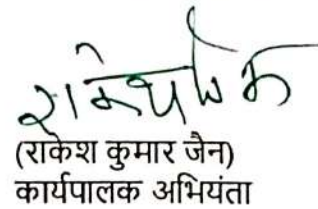 (राकेश कुमार जैन)
कार्यपालक अभियंता